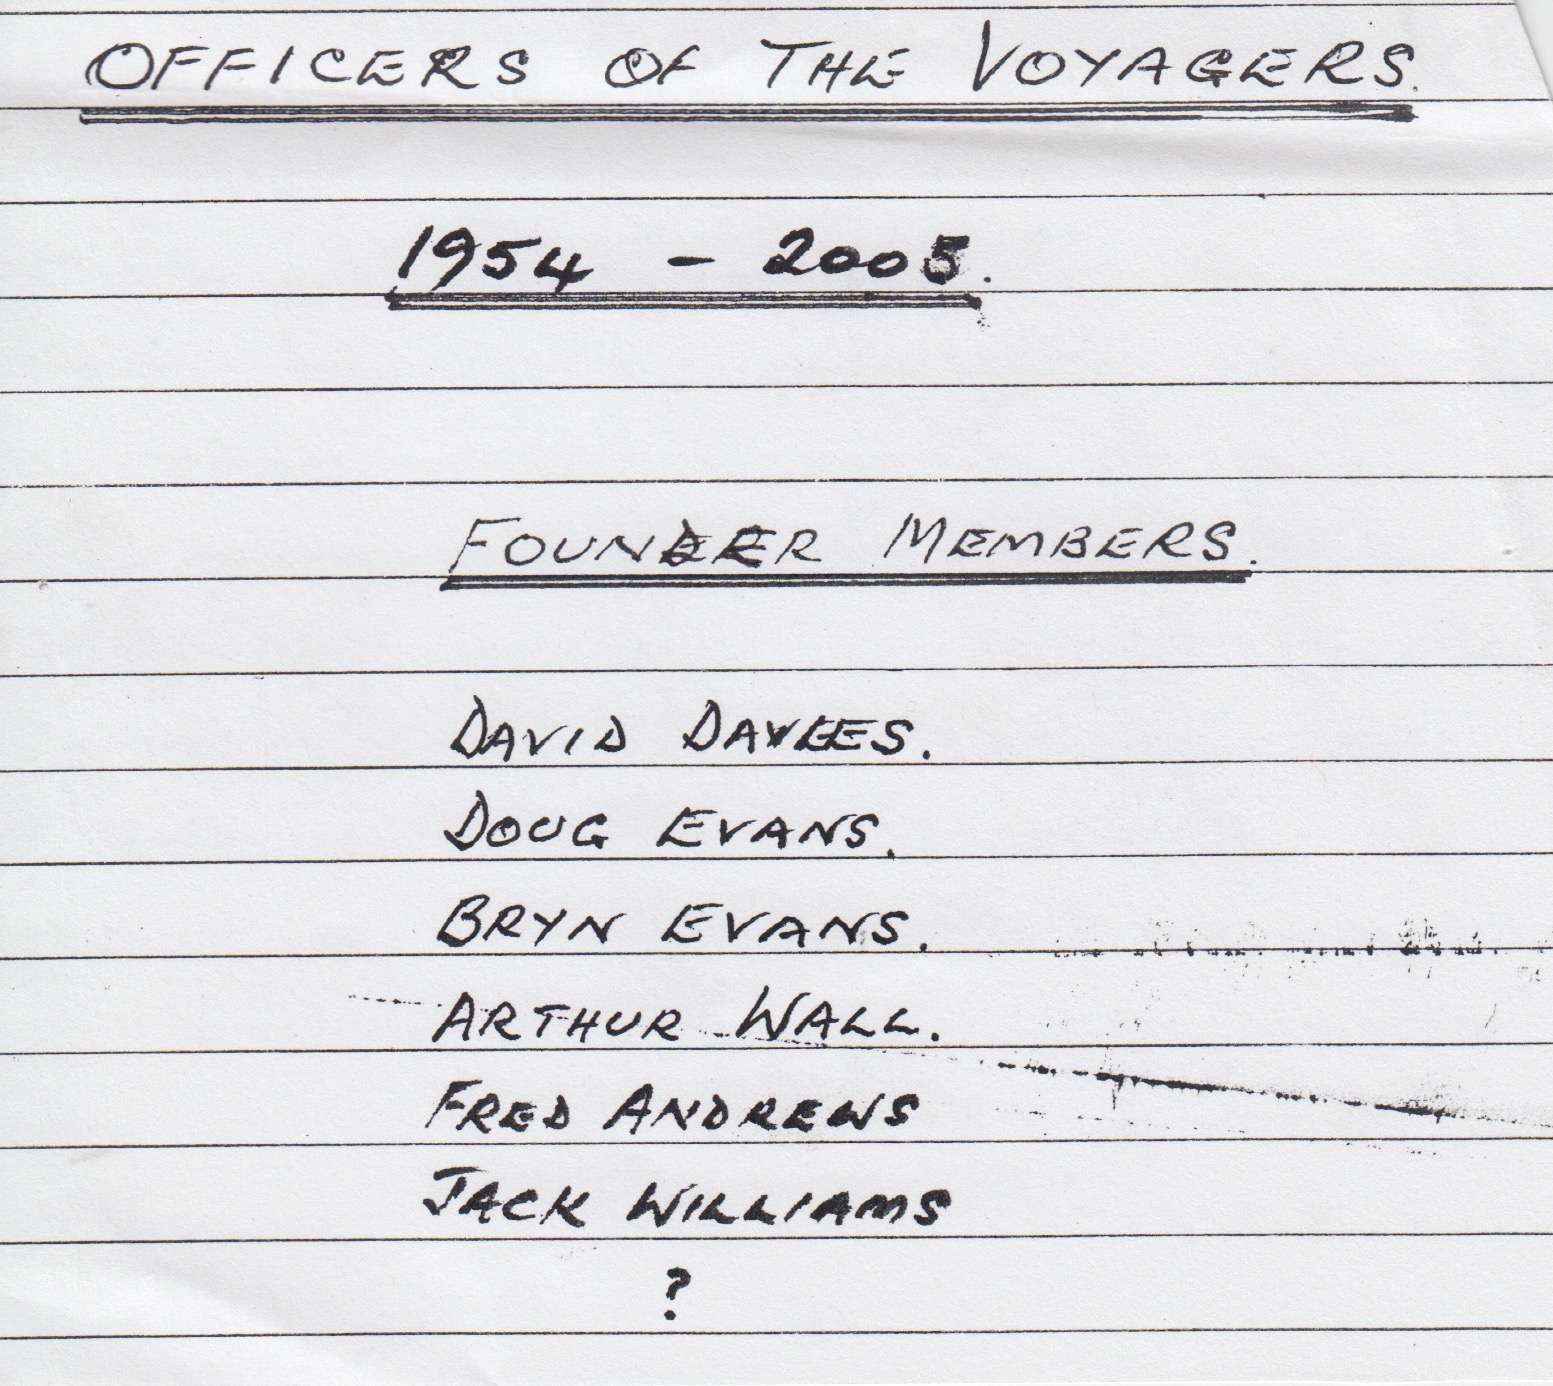 OFFICERS OF THE VOYAGERS.
1954 - 2005.
FOUNDER MEMBERS.
DAVID DAVIES.
DOUG EVANS.
BRYN EVANS.
ARTHUR WALL.
FRED ANDREWS
JACK WILLIAMS
?